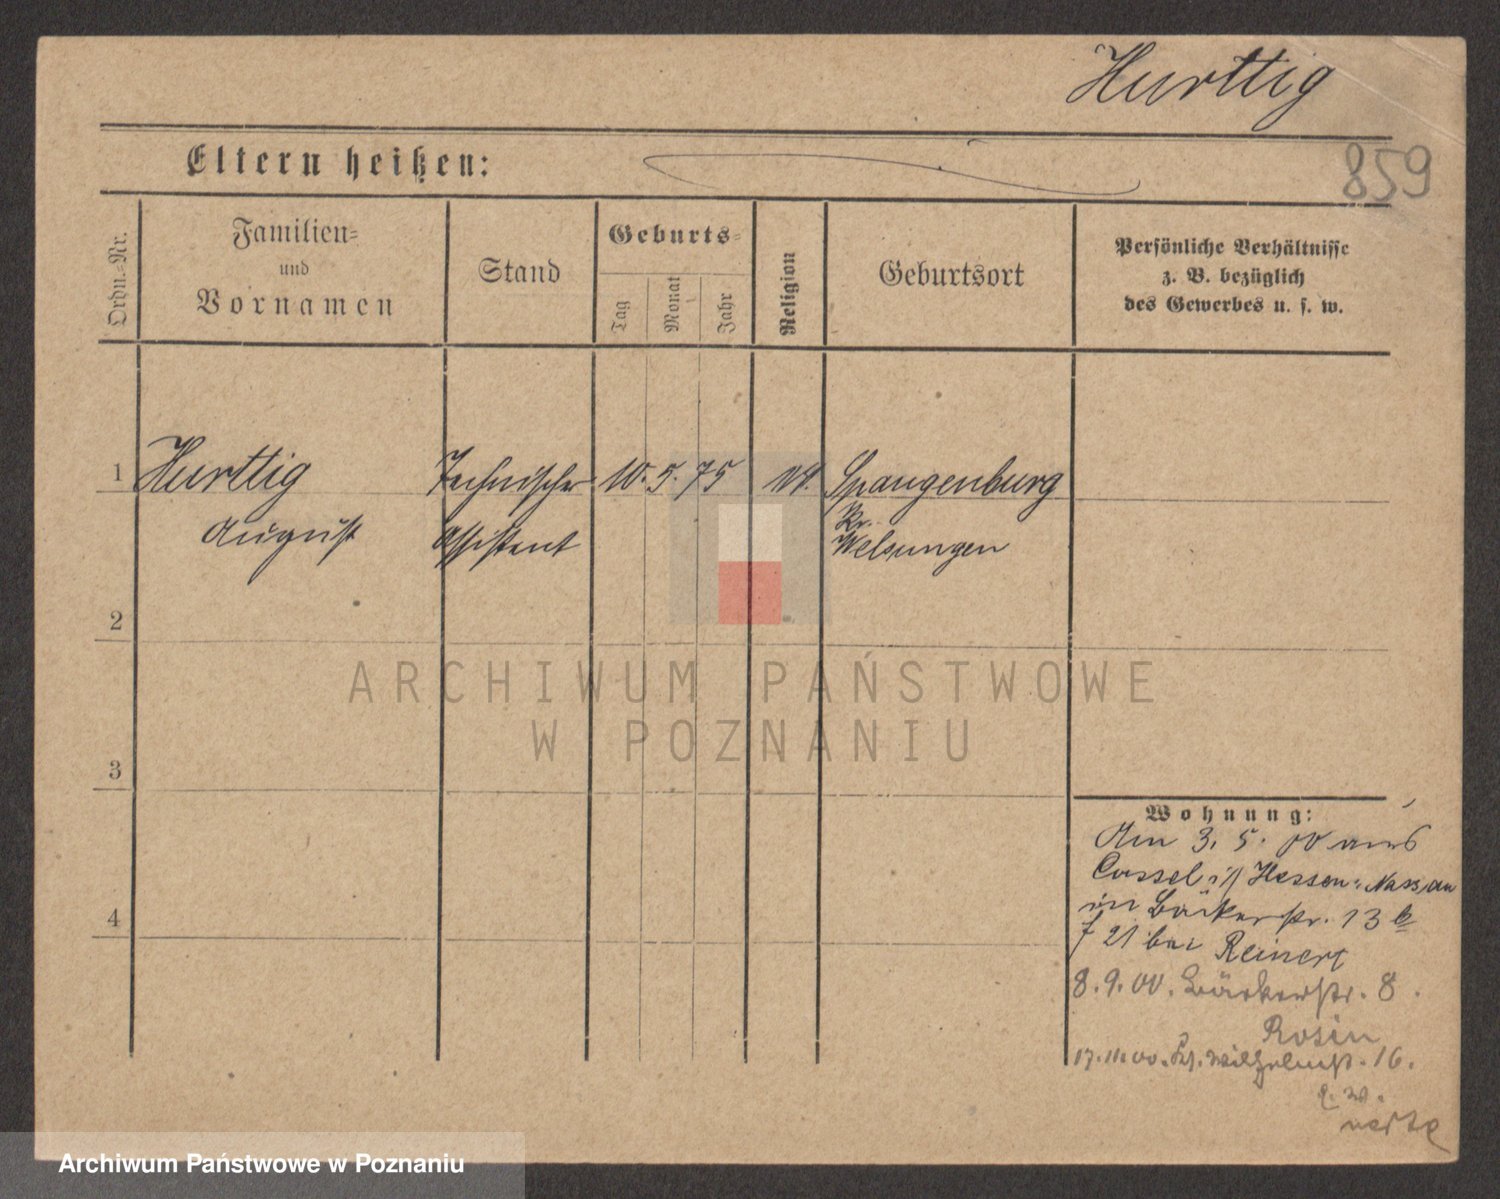 Hurttig
859
Eltern heißen:
Ordn.=Nr.
Familien=
und
Vornamen
Stand
Geburts=
Tag
Monat
Jahr
Religion
Geburtsort
Persönliche Verhältnisse
z. B. bezüglich
des Gewerbes u. s. w.
1
Hurttig
August
Technischer
Assistent
10. 5. 75
Spangenburg
Kr.
Melsungen
2
ARCHIWUM PAŃSTWOWE
W POZNANIU
3
4
Wohnung:
Am 3. 5. 00 aus
Cassel i/ Hessen=Nassau
in Bäckerstr. 13 b
f 21 bei Reinert
8. 9. 00. Bäckerstr. 8.
Rosin
17. 11. 00. Wilhelmstr. 16.
Archiwum Państwowe w Poznaniu